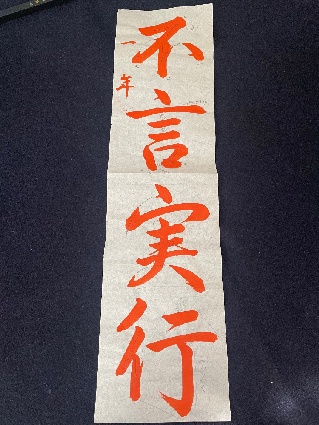 不言実行
一年